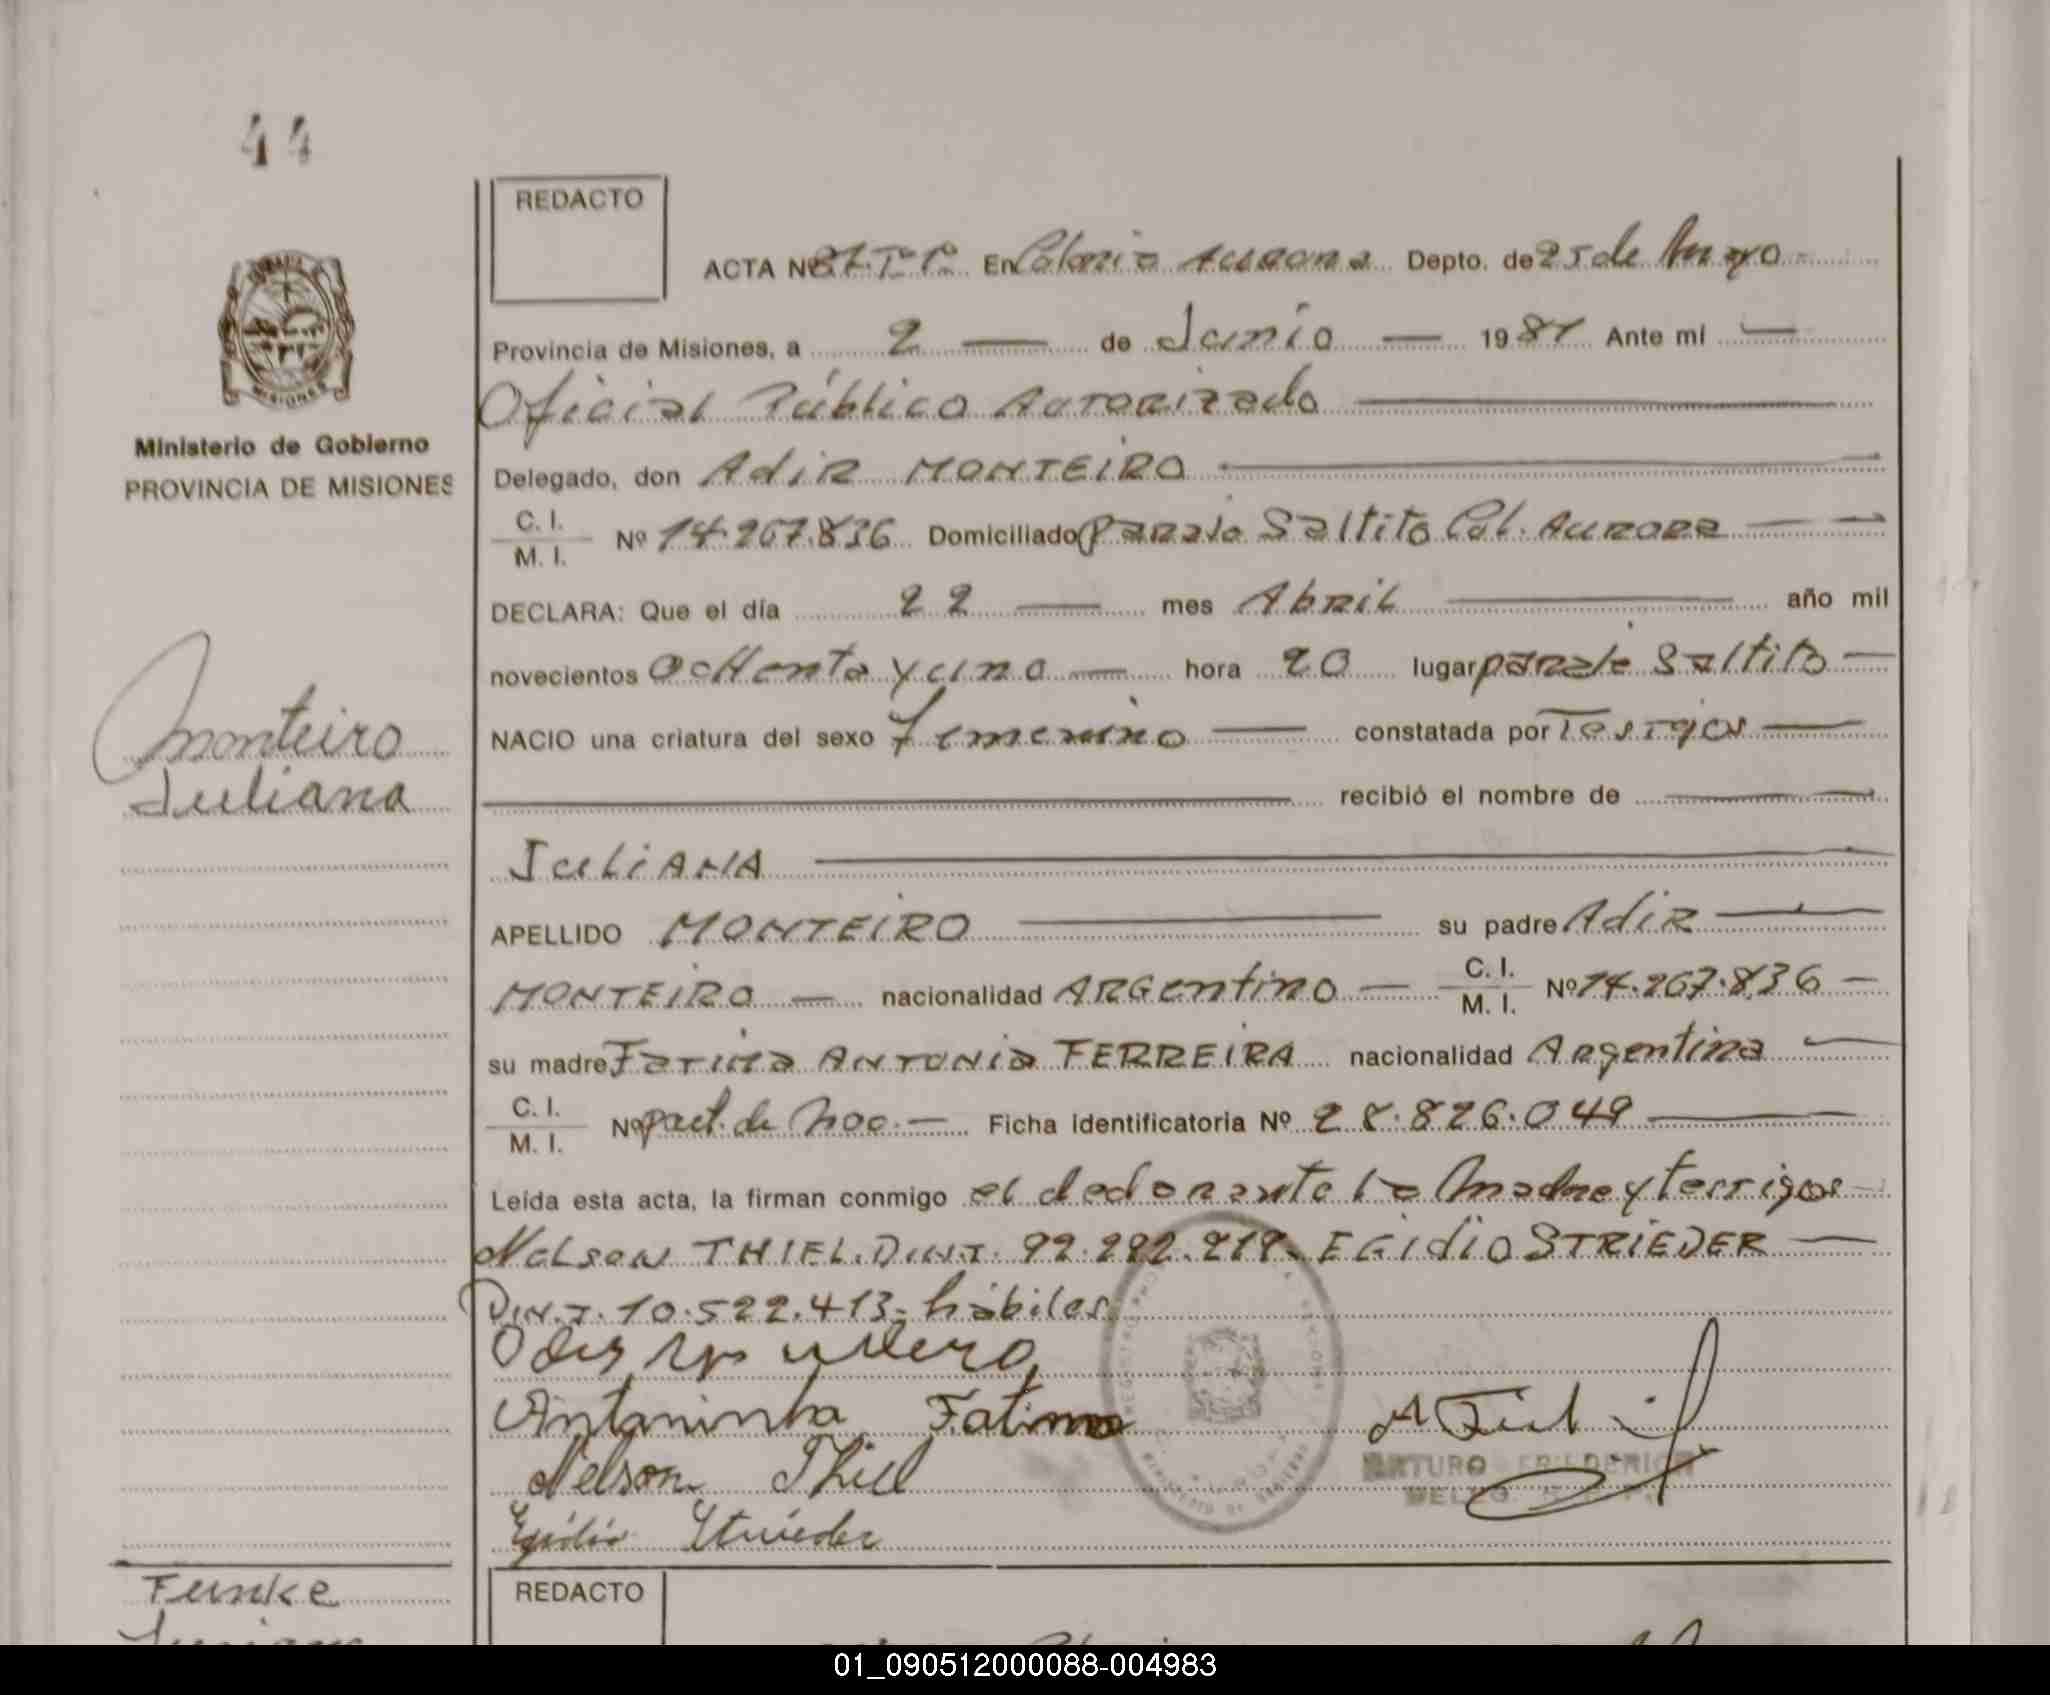 44
REDACTO
ACTA Nº 87. Tº 1º. En Colonia Aurora Depto. de 25 de Mayo
Provincia de Misiones, a 2 de Junio 1981 Ante mi
Oficial Público Autorizado
Ministerio de Gobierno
PROVINCIA DE MISIONES
Delegado, don Adir MONTEIRO
C. I.
M. I. Nº 14.267.836 Domiciliado Paraje Saltito Col. Aurora
DECLARA: Que el día 22 mes Abril año mil
novecientos ochenta y uno hora 20 lugar paraje Saltito
NACIO una criatura del sexo femenino constatada por Testigos
recibió el nombre de
Monteiro
Juliana
JULIANA
APELLIDO MONTEIRO su padre Adir
MONTEIRO nacionalidad ARGentino C. I.
M. I. Nº 14.267.836
su madre Fatima ANTONIA FERREIRA nacionalidad Argentina
C. I.
M. I. Nº part. de nac. Ficha identificatoria Nº 28.826.049
Leída esta acta, la firman conmigo el declarante la Madre y testigos
Nelson THIEL. D.N.I. 92.292.219. EGidio STRIEDER
D.N.I. 10.522.413. hábiles
Antaninha Fatima
Nelson Thiel
Egidio Strieder
ARTURO FRIEDERICH
Funke
REDACTO
01_090512000088-004983